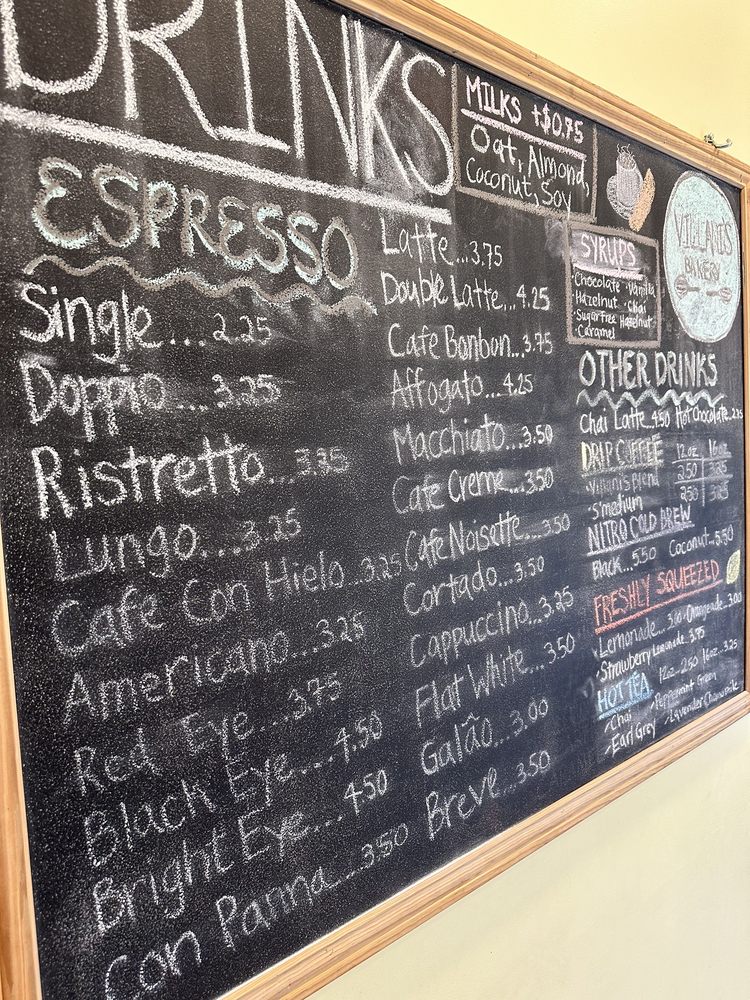 DRINKS
ESPRESSO
Single...2.25
Doppio....3.25
Ristretto...3.25
Lungo....3.25
Cafe Con Hielo...3.25
Americano...3.25
Red Eye...3.75
Black Eye...4.50
Bright Eye....4.50
Con Panna...3.50
Latte...3.75
Double Latte...4.25
Cafe Bonbon...3.75
Affogato...4.25
Macchiato...3.50
Cafe Creme...3.50
Cafe Noisette...3.50
Cortado...3.50
Cappuccino...3.25
Flat White...3.50
Galão...3.00
Breve...3.50
MILKS +$0.75
Oat, Almond,
Coconut, Soy
SYRUPS
•Chocolate •Vanilla
Hazelnut •Chai
•Sugar free Hazelnut
•Caramel
VILLANI'S
BAKERY
OTHER DRINKS
Chai Latte...4.50 Hot Chocolate...2.75
DRIP COFFEE 12oz 16oz
•Villani's Blend 2.50 3.25
•S'medium 2.50 3.25
NITRO COLD BREW
Black...5.50 Coconut...5.50
FRESHLY SQUEEZED
•Lemonade...3.00 •Orangeade...3.00
•Strawberry Lemonade 3.75
HOT TEA 12oz 2.50 16oz 3.25
•Chai •Peppermint Green
•Earl Grey •Lavender Chamomile